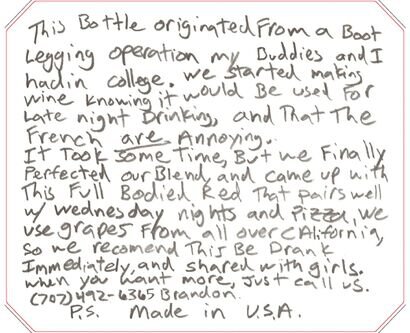 This Bottle originated From a Boot
Legging operation my Buddies and I
had in college. We started making
wine knowing it would Be used For
Late night Drinking, and That The
French are Annoying.
It Took some Time, But we Finally
Perfected our Blend, and came up with
This Full Bodied Red That pairs well
w/ Wednesday nights and Pizza, We
use grapes From all over CAlifornia,
So we recomend This Be Drank
Immediately, and shared with girls.
when you want more, Just call us.
(707)492-6365 Brandon.
P.S. Made in U.S.A.